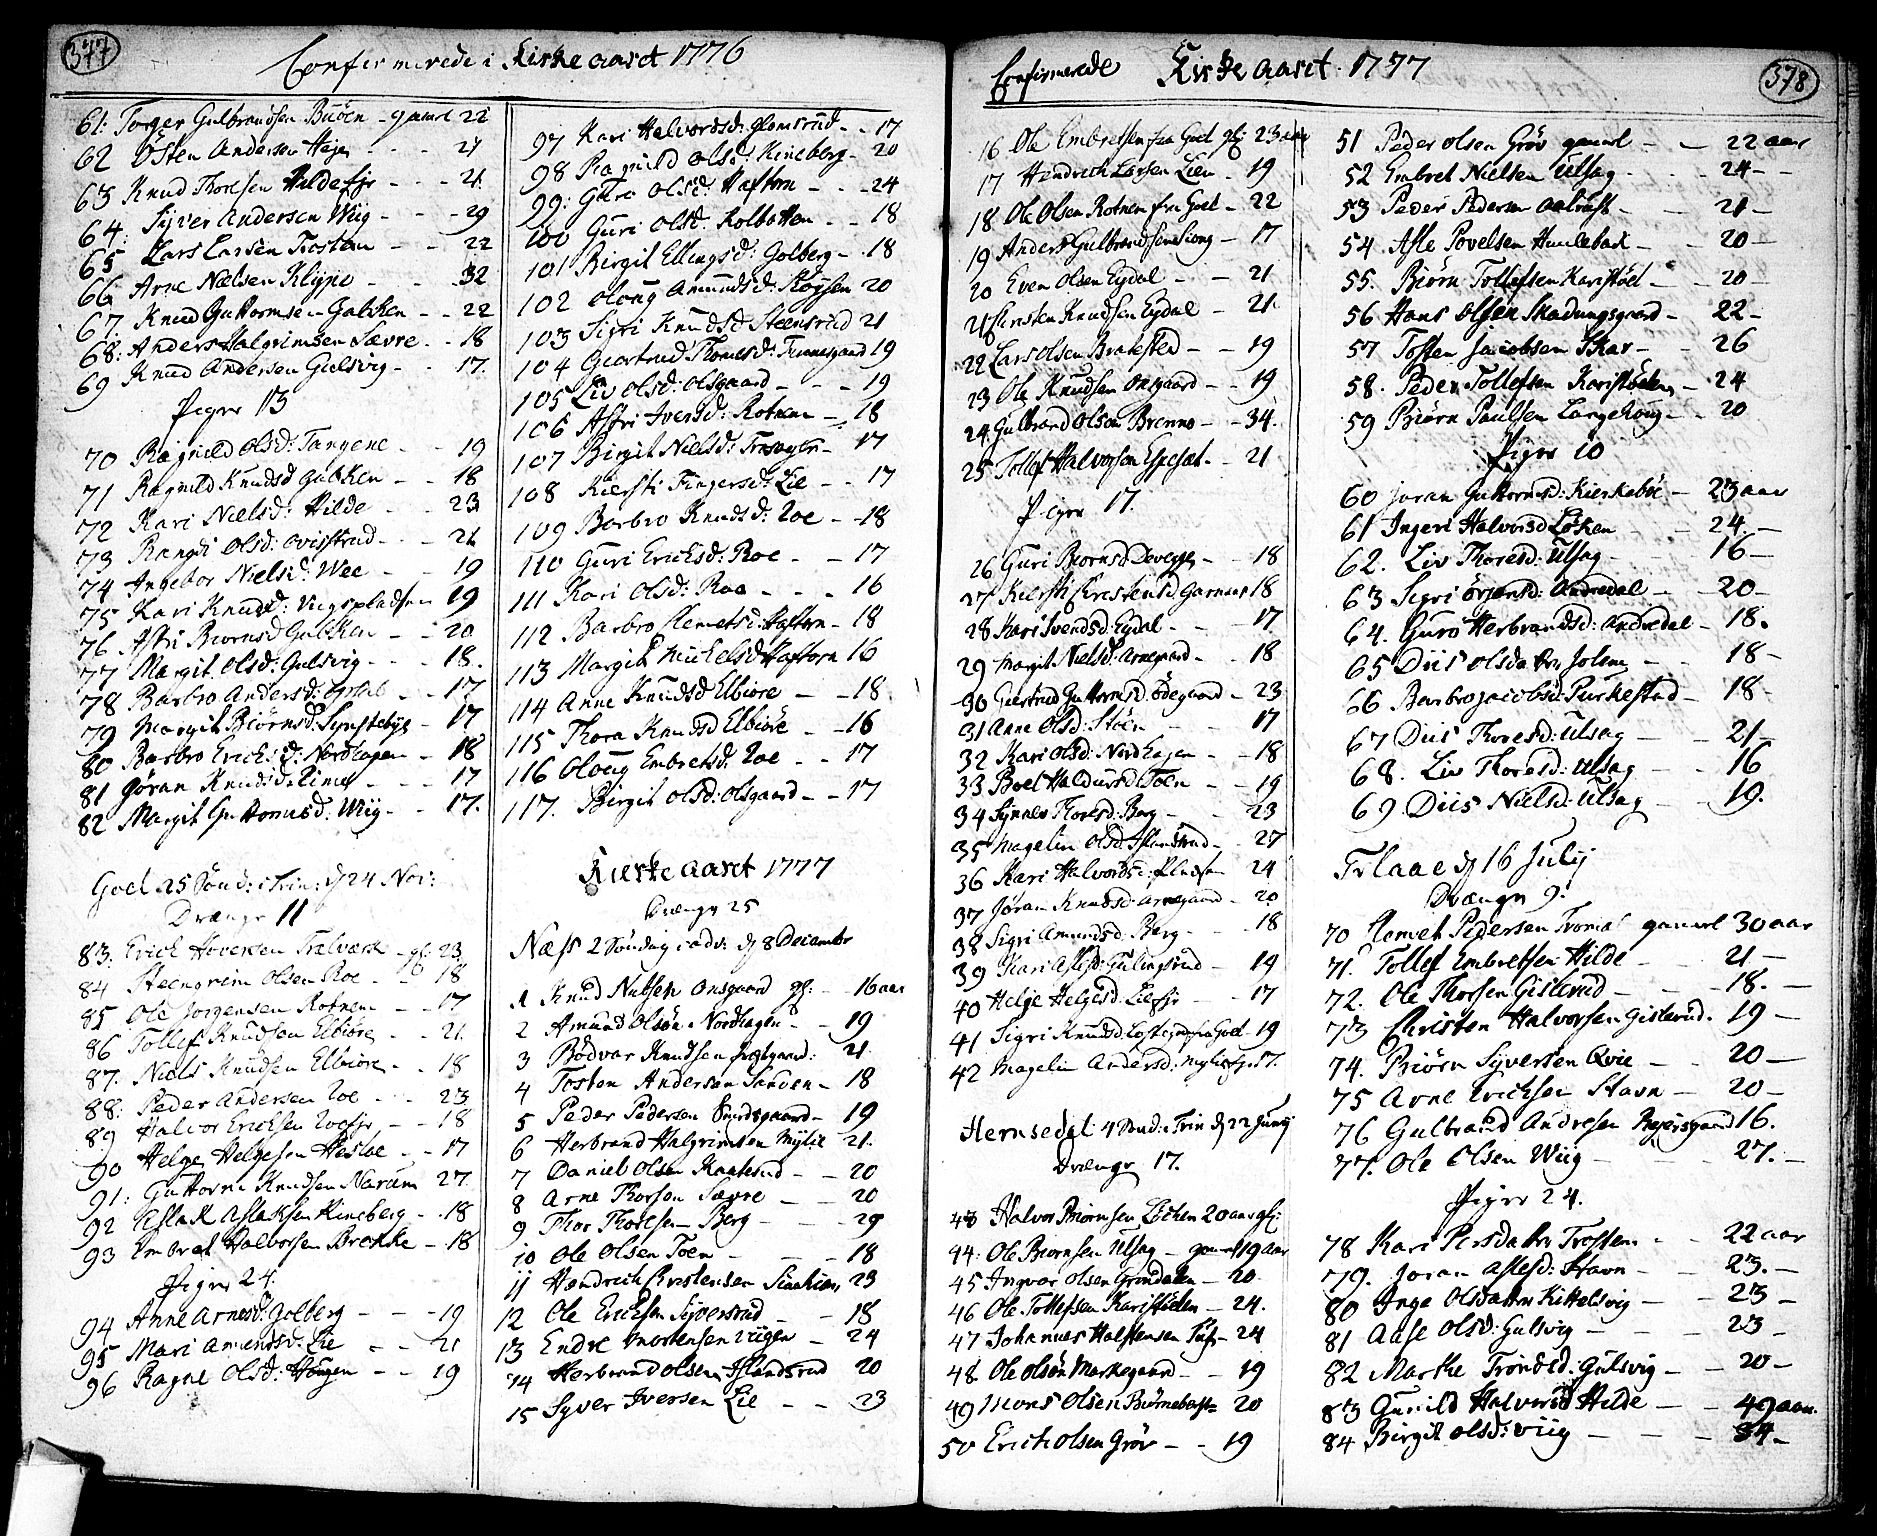 377
Confirmerede i Kirke aaret 1776
61: Torger Gulbrandsen Buöen - gamel 22
62 Östen Andersen Hagen - - - 24
63 Knud Thoresen Hildefjr - - - 21
64: Syver Andersen Wiig - - - 29
65 Lars Larsen Trosten - - 22
66 Arne Nielsen Klype - - - 32
67. Knud Guttormsen Gakken - - 22
68: Anders Halgrimsen Sævre - - 18
69 Knud Andersen Gulsvig - - 17.
Piger 13
70 Ragnild Olsd: Tangene - - 19
71 Ragnild Knudsd Gakken - - 18
72 Kari Nielsd: Hilde - - 23
73 Rangdi Olsd: - - - 21
74 Ingebor Nielsd: Wee - - 19
75 Kari Knudsd: 19
76 Astri Biornsd Gakken - - 20
77 Margit Olsd: Gulsvig - - - 18.
78 Barbro Andersd: - - 17
79 Margit Biörnsd: Synstebye - 17
80 Barbro Ericksd: Nordhagen - 18
81 Jøran Knudsd: - - - 17
82 Margit Guttormsd: Wiig - - 17.
Goel 25 Sönd: i Trin: d 24 Nov:
Drænge 11
83: Erick Trælvask - gl: 23
84 Steengrim Olsen Roe - - 18
85 Ole Jorgensen Rotnem - - 17
86 Tollef Knudsen Elbiöre - - 21
87. Niels Knudsen Elbiöre - - 18
88: Peder Andersen Loe - - 23
89 Halvor Ericksen - - 18
90 Helge Helgesen Hesloe - - 17
91: Guttorm Knudsen Narum 27
92 Aslak Aslaksen Kineberg - - 18
93 Embret Halvorsen Brekke - 18
Piger 24.
94 Anne Arnesd: Golberg - - - 19
95 Mari Amundsd: Lie - - 21
96 Ragne Olsd: Haugen - - 19
97 Kari Halvordsd: Glomsrud - - 17
98 Ragnild Olsd: Kineberg - 20
99: Guro Olsd: Haftorn - - - 24
100 Guri Olsd: Kolbotten - - 18
101 Birgit Ellingsd: Golberg - - 18
102 Oloug Amundsd: Köysen 20
103 Sigri Knudsd Steensrud 21
104 Giertrud Thomesd: Finnesgaard 19
105 Liv Olsd: Olsgaard - - - 19
106 Astri Iversd: Rotnem - 18
107 Birgit Nielsd: - 17
108 Kiersti Fingersd: Lie - - 17
109 Barbro Knudsd: Loe - - 18
110 Guri Ericksd: Roe - - 17
111 Kari Olsd: Roa - - - 16
112 Barbro Clemetsd: Haftorn - 18
113 Margit Mickelsd Haftorn 16
114 Anne Knudsd Elbiöre - - 18.
115 Thora Knudsd Elbiöre - - 16
116 Oloug Embretsd: Loe - - 17
117. Birgit Olsd: Olsgaard - - 17
Kierke aaret 1777
Drænge 25
Næss 2 Söndag i adv: d 8 December
1 Knud Nubsen Onsgaard gl: - - 16 aar
2 Amund Olsön Nordhagen - - 19
3 Bödvar Knudsen 21
4 Tosten Andersen Sanden - 18
5 Peder Pedersen - 19
6 Herbrand Halgrimsen Myhre 21.
7 Daniel Olsen - - 20
8 Arne Thorsen Sævre - - 20
9 Thor Thoresen Berg - - 29
10 Ole Olsen Toen - - - 18
11 Hendrich Christensen 23
12 Ole Ericksen Syversrud - - 18
13 Endre Mortensen Viigen - - 24
14 Herbrand Olsen Islandsrud 20
15 Syver Iversen Lie - - 23
Confirmerede Kirke aaret 1777
378
16 Ole Embretsen fra Goel gl: 23 aar
17 Hendrich Larsen Lien - 19
18 Ole Olsen Rotnem fra Goel - 22
19 Anders Gulbrandsen Liong - 17
20 Even Olsen Eydal - - 21
21 Christen Knudsen Eydal - 21
22 Lars Olsen Brakestad - - 19
23 Ole Knudsen Onsgaard - - 19
24 Gulbrand Olsen Brenno - - 34.
25 Tollef Halvorsen Espeset - - 21
Piger 17.
26 Guri Biornsd Deveggen - - 18
27 Kiersti Christensd Garnaas 18
28 Kari Svendsd: Eydal - - 17
29 Margit Nielsd: Arnegaard - - 18
30 Giertrud Guttormsd: Ödegaard - 23
31 Anne Olsd: Stöen - - 17
32 Kari Olsd: Nordhagen - - 18
33 Boel Haldursd Toen - - 19
34 Synnev Thoresd: Berg - - 23
35 Magelin Olsd: Islandsrud - - 27
36 Kari Halvordsd: 24
37 Jøran Knudsd: Arnegaard - 20
38 Sigri Amundsd: Berg - - 18
39 Kari Aslesd: Gulingsrud - 19
40 Helge Helgesd: Liefjr - - 17
41 Sigri Knudsd fra Goel 19
42 Magelin Andersd: 17.
Hemsedal: 4 Sönd: i Trin d 22 Junij
Drænge 17.
43 Halvor Biornsen Löcken 20 aar gl:
44: Ole Biornsen Ulsag - gamel 19 aar
45 Ingvar Olsen Gröndalen - 20
46 Ole Tollefsen Karistöelen - 24.
47 Johannes Halstensen - 24
48 Ole Olsön Markegaard - - 19
49 Mons Olsen 20
50 Erich Olsen Gröv - - 19
51 Peder Olsen Gröv gamel - - 22 aar
52 Embret Nielsen Ulsag - - - 24 -
53 Peder Pedersen - - 21 -
54 Asle Povelsen Hulebak - - 20 -
55. Biörn Tollefsen Karistöel - - 20 -
56 Hans Olsen Skadungsgaard - 22 -
57 Tosten Jacobsen Skar - - 26
58. Peder Tollefsen Karistöelen - 24
59 Biörn Paulsen Langehoug - - 20
Piger 10
60 Joran Guttormsd: Kierkeböe - 23 aar
61 Ingeri Halvorsd Löken - - 24 -
62. Liv Thoresd: Ulsag - - 16 -
63 Sigri Örjansd: Andredal - - 20 -
64. Guro Herbrandsd: Andredal - 18.
65 Diis Olsdatter Jolem - - 18 -
66 Barbro Jacobsd: Purkestad - 18 -
67 Diis Thoresd: Ulsag - - 21 -
68. Liv Thoresd: Ulsag - - 16
69. Diis Nielsd: Ulsag - - 19.
Fr laae d 16 Julij
Drænge 9.
70 Clemet Pedersen gamel 30 aar
71. Tollef Embretsen Hilde - - 21 -
72. Ole Thorsen Gislerud - - - 18. -
73 Christen Halvorsen Gislerud. 19 -
74. Biörn Syversen Qvie - - 20 -
75 Arne Ericksen Stavn - - 20 -
76 Gulbrand Andresen Beyersgaard 16.
77. Ole Olsen Wiig - - - 27. -
Piger 24.
78 Kari Persdatter Trosten - - 22 aar
79. Joran Aslesd: Stavn - - 23. -
80 Inge Olsdatter Kittelsvig - - 23 -
81 Aase Olsd: Gulsvig - - 23 -
82 Marthe Trondsd: Gulsvig - - 20 -
83 Gunild Halvorsd Hilde - - 49 aar.
84 Birgit Olsd: Viig - - - 34 -